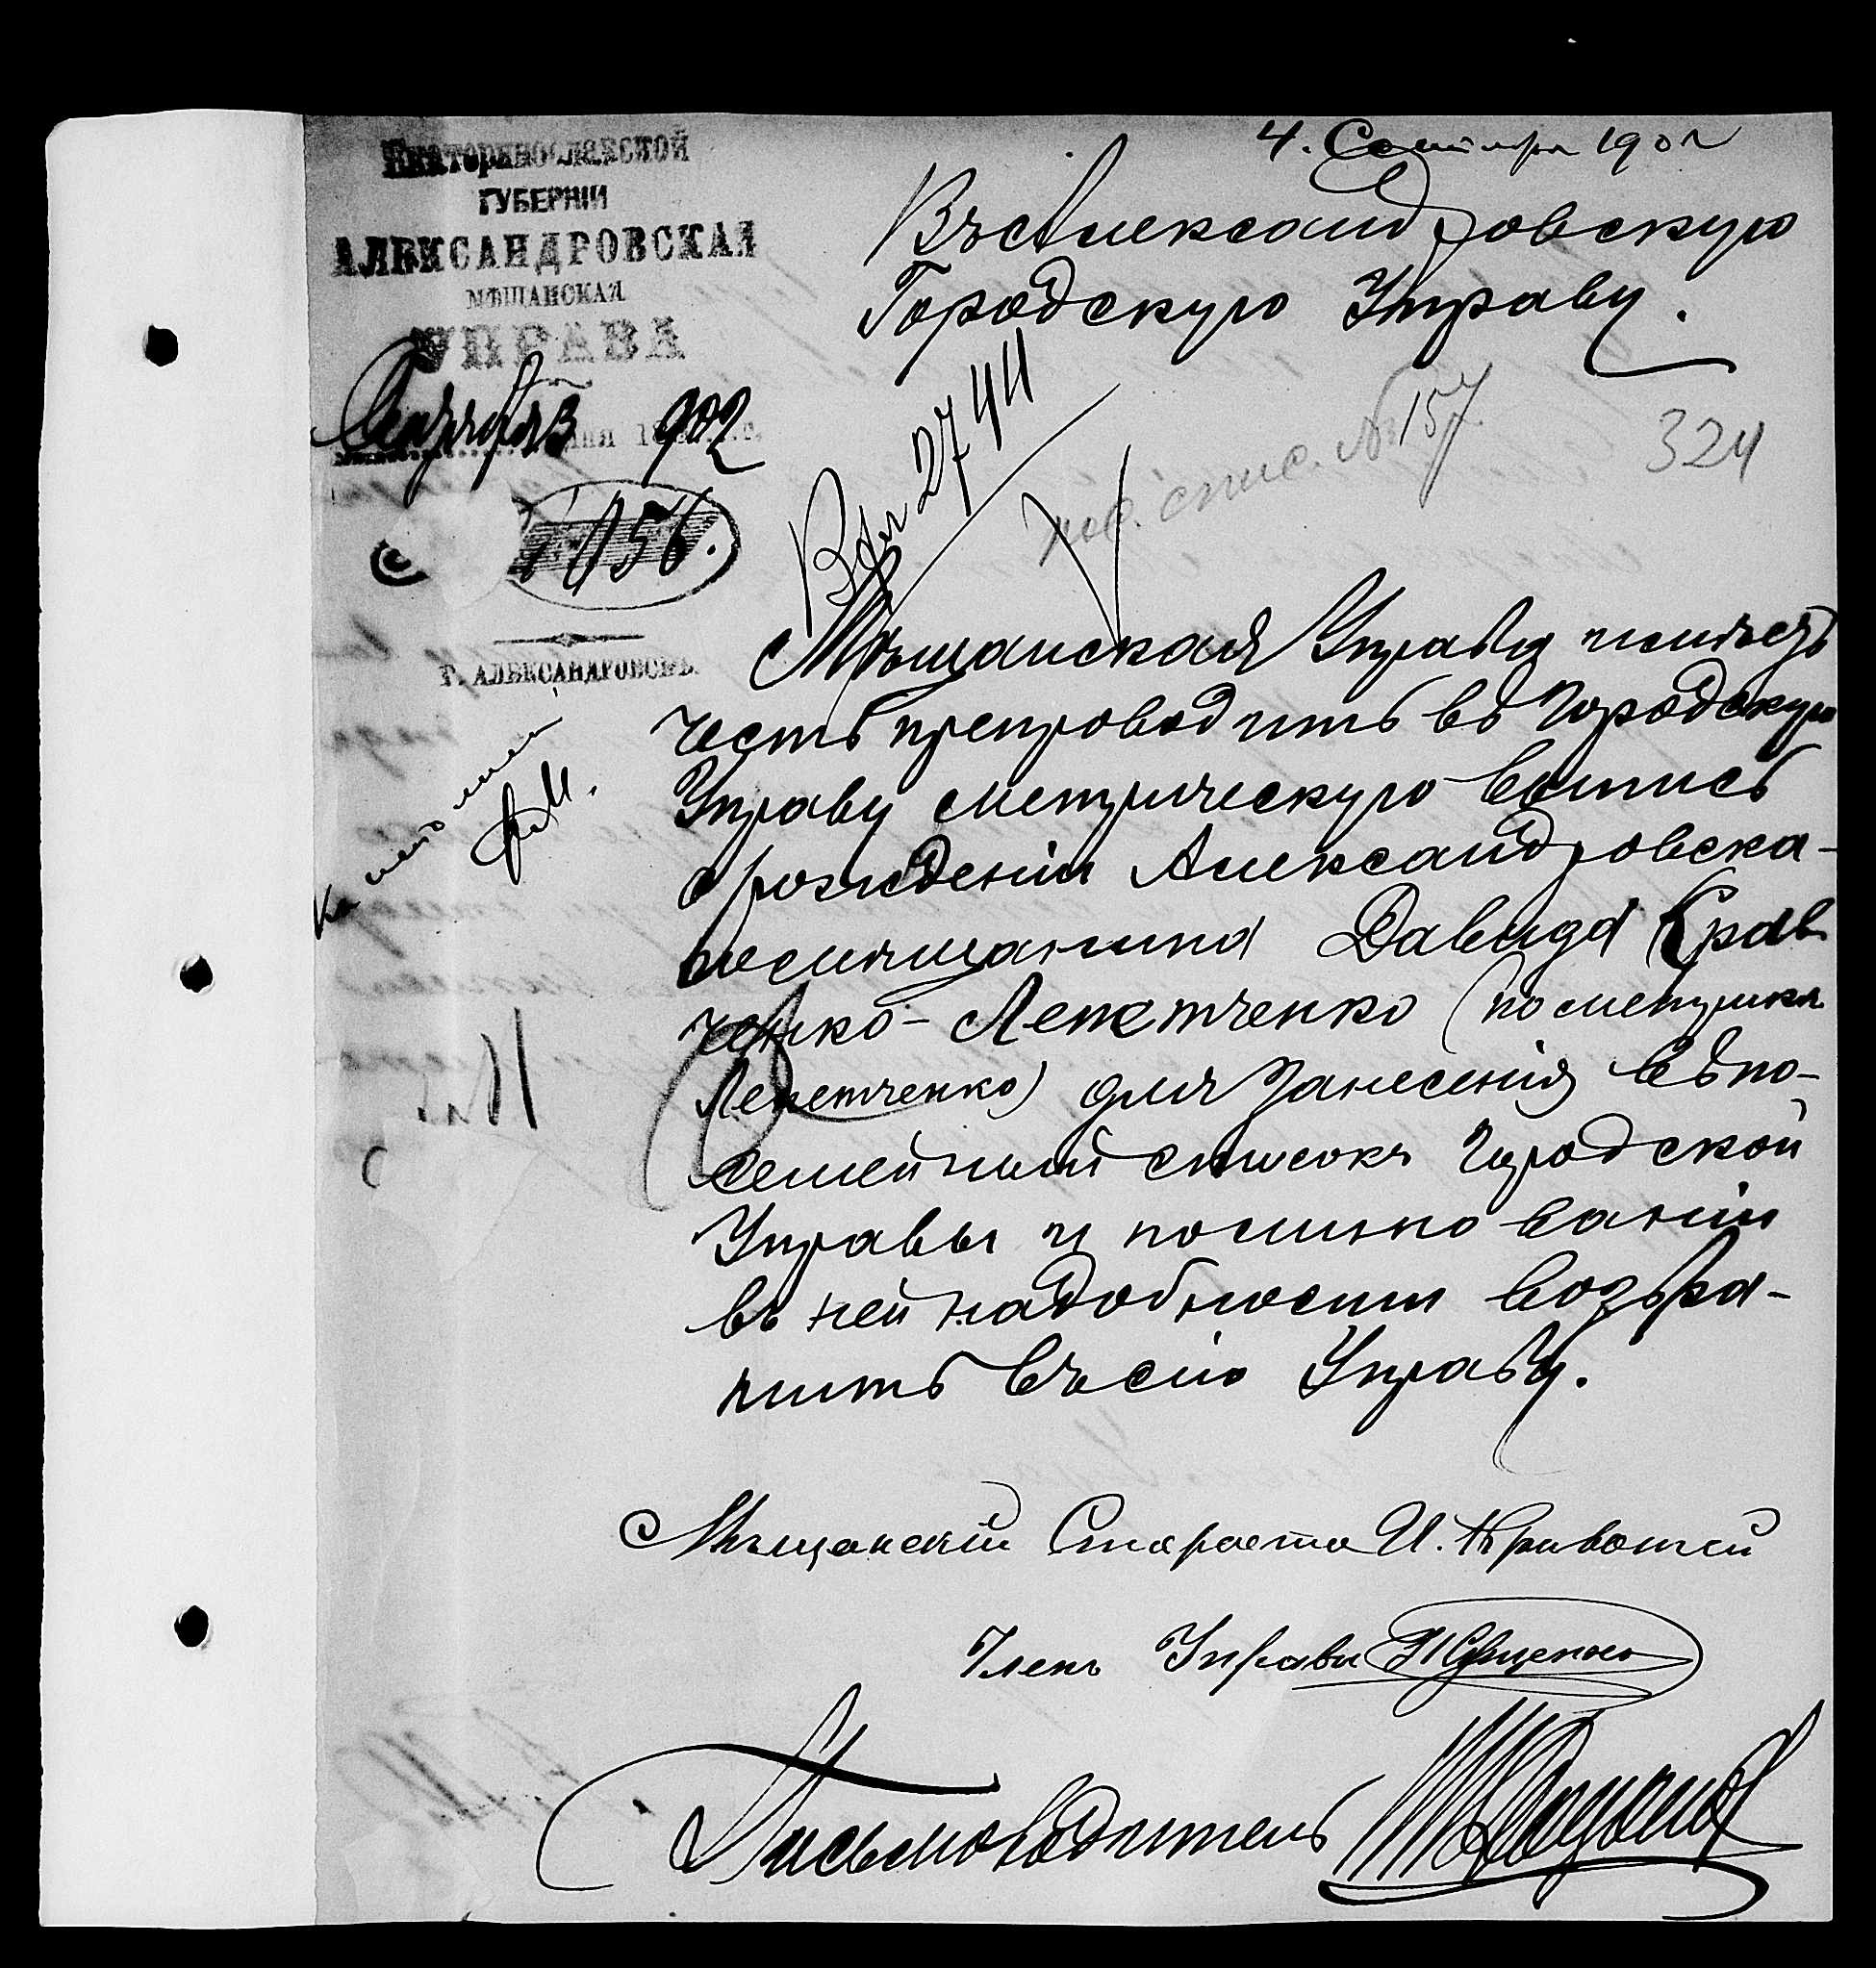 Екатеринославской
ГУБЕРНІИ
АЛЕКСАНДРОВСКАЯ
МѢЩАНСКАЯ
УПРАВА
Сентября 3 дня 1902 г.
№ 1156.
Г. АЛЕКСАНДРОВСКЪ.
4. Сентября 1902
Въ Александровскую
Городскую Управу.
Вх № 2744
пос. спис. № 157.
324
Мѣщанская Управа имѣетъ
честь препроводить въ Городскую
Управу метрическую выпись
о рожденіи Александровска-
го мѣщанина Давида Крав
ченко-Лепетченко (по метрикѣ
Лепетченко) для занесенія въ по-
семейный списокъ Городской
Управы и по минованіи
въ ней надобности возвра-
тить въ сію Управу.
Мѣщанскій Староста И. Кривошей
Членъ Управы
Письмоводитель